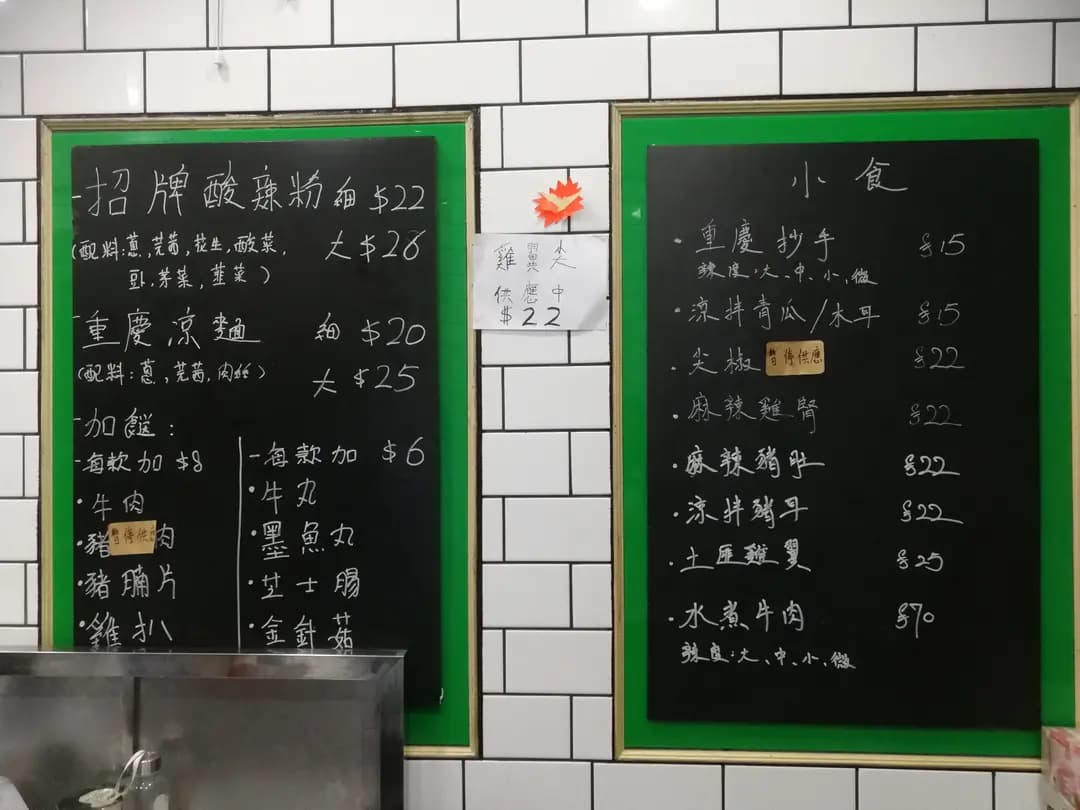 -招牌酸辣粉 細 $22
(配料:蔥,芫茜,花生,酸菜, 大 $28
豆,芽菜,韮菜)
-重慶涼麵 細 $20
(配料:蔥,芫茜,肉絲) 大 $25
-加餸:
-每款加 $8
•牛肉
•豬 暫停供應 肉
•豬腩片
•雞扒
-每款加 $6
•牛丸
•墨魚丸
•芝士腸
•金針菇
雞翼尖
供應中
$22
小食
•重慶抄手 $15
辣度:大、中、小、微
•涼拌青瓜/木耳 $15
•尖椒 暫停供應 $22
•麻辣雞腎 $22
•麻辣豬肚 $22
•涼拌豬耳 $22
•土匪雞翼 $25
•水煮牛肉 $70
辣度:大、中、小、微